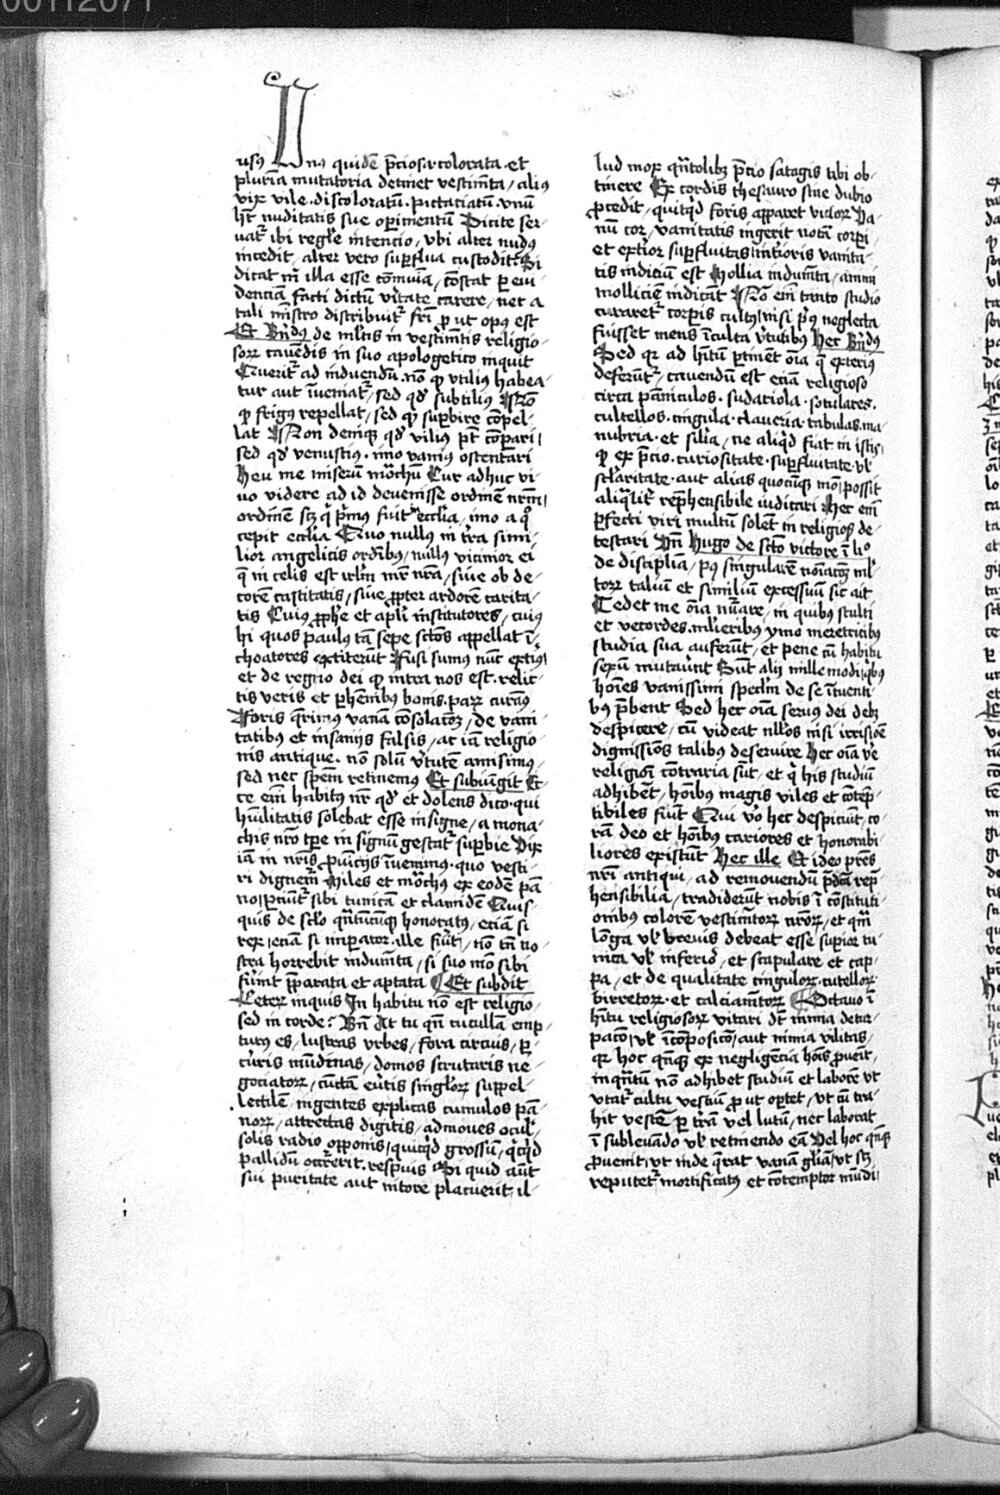 00112071
usꝰ Unꝰ quidē p̄ciosa ⁊ colorata · et
plurīa mutatoria detinet vestimēta / aliꝰ
vix vile · discoloratū · pictaciatū · vnū
hꝫ nuditatis sue operimentū Dicite ser-
uat᷑ ibi regl̄e intencio / vbi alter nudꝰ
incedit / alter vero suꝑflua custodit Si
dicat᷑ m̄ illa esse cōmunia / cōstat ꝑ eui-
denciā facti dictū v̓itate carere / nec a
tali mīstro distribuit᷑ fr̄i ꝓut opꝰ est
Et Bn̄dꝰ de ml̓tis in vestimētis religio-
soꝝ cauēdis in suo apologetico inquit
Querit᷑ ad induendū · nō qͦ vtiliꝰ habea-
tur aut īueniat᷑ / sed qd̓ subtiliꝰ Nō
qͦ frigꝰ repellat / sed qͦ suꝑbire cōpel-
lat Non deniqꝫ qd̓ viliꝰ pt̄ cōpari /
sed qd̓ venustiꝰ · imo vaniꝰ ostentari
Heu me miserū mōchū Cur adhuc vi-
uo videre ad id deuenisse ordinē nr̄m /
ordinē scꝫ q̇ p̓mꝰ fuit in ecclīa / imo a qͦ
cepit ecclīa Quo nullꝰ in tr̄a simi-
lior angelicis ordībꝰ / nullꝰ vicinior ei
q̄ in celis est irlm̄ mr̄ nr̄a / siue ob de-
corē castitatis / siue ꝓpter ardorē carita-
tis Cuiꝰ ꝓph̄e et apl̓i institutores / cuiꝰ
hi quos paulꝰ tā sepe sctōs appellat ī-
choatores extiterūt Fusi sumꝰ nūc exteriꝰ /
et de regno dei qͦ intra nos est · relic-
tis veris et ꝑhēnibꝰ bonis · paꝝ curamꝰ
Foris q̄rimꝰ vanā cōsolacōꝫ / de vani-
tatibꝰ et insanijs falsis / ac iā religio-
nis antique · nō solū v̓tutē amisimꝰ
sed nec speciem retinemꝰ Et subiungit Ec-
ce em̄ habitꝰ nr̄ qd̓ et dolens dico · qui
hūilitatis solebat esse insigne / a mona-
chis nr̄o tp̄e in signū gestat᷑ suꝑbie Vix
iā in nr̄is ꝓuīcijs īuenimꝰ · quo vesti-
ri dignem̄ Miles et mōchꝰ ex eodē pā-
no ꝑciūt᷑ sibi tunicā et clamidē Quis-
quis de sclo q̄ntūcūqꝫ honoratꝰ / eciā si
rex / eciā si imꝑator ille fu̓it / nō tn̄ no-
stra horrebit indumēta / si suo mō sibi
fu̓int p̄parata et aptata Et subdit
Ceteꝝ inquis In habitu nō est religio /
sed in corde : Bn̄ At tu qn̄ cucullā emp-
turꝰ es / lustras vrbes / fora circuis / ꝑ-
cūris nūdinas / domos scrutaris ne-
gociatoꝝ / cūcta eūtis singl̓oꝝ suppel-
lectilē / ingentes explicas cumulos pā-
noꝝ / attrectas digitis / admoues ocul̓ /
solis radio opponis / quicq̇d grossū / q̇cq̇d
pallidū occ̄rerit · respuis Si quid aūt
sui puritate aut nitore placuerit / il-
lud mox q̄ntolibꝫ p̄cio satagis tibi ob-
tinere Ex cordis thesauro sine dubio
ꝓcedit / quicq̇d foris apparet vicioꝝ Va-
nū cor / vanitatis ingerit notā corpi /
et exteior suꝑfluitas īterioris vanita-
tis indiciū est Mollia indumēta / animi
molliciē indicāt Nō em̄ tanto studio
curaret᷑ corꝑis cultꝰ / nisi p̓us neglecta
fuisset mens īculta v̓tutibꝰ Hec Bn̄dꝰ
Sed qꝛ ad hītū ꝑtinēt oīa q̄ exteriꝰ
deferūt᷑ / cauendū est eciā religioso
circa pāniculos · sudariola · sotulares ·
cultellos · cingula · clauería · tabulas · ma-
nubria · et silīa / ne aliq̇d fiat in istis /
qͦ ex p̄cio · curiositate · suꝑfluitate · vl̓
sc̄laritate · aut alias quocūqꝫ mō / possit
aliq̄lit᷑ repͥhensibile iudicari Hec em̄
ꝑfecti viri multū solēt in religiosꝭ de-
testari Vn̄ Hugo de scto victore ī liᵒ
de disciplīa / pꝰ singularē noīacōꝫ ml̓-
toꝝ taliū et similiū excessuū sic ait
Tedet me oīa nūare / in quibꝰ stulti
et vecordes · ml̓ieribꝰ ymo meretricibꝰ
studia sua auferūt / et pene cū habitu
sexū mutauēt Sunt alij mille modi / q̇bꝰ
hoīes vanissimi speclm̄ de se īuenti-
bꝰ p̄bent Sed hec oīa seruꝰ dei debꝫ
despicere / cū videat nll̓os nisi irrisiōe
dignissimos talibꝰ deseruire Hec oīa v̓e
religiōi cōtraria sūt / et q̇ his studiū
adhibēt / hoībꝰ magis viles et cōtēp-
tibiles fiūt Qui v̓o hec despiciūt / co-
rā deo et hoībꝰ cariores et honorabi-
liores existūt Hec ille Et ideo pr̄es
nr̄i antiqui / ad remouendū p̄dcā rep̓-
hensibilia / tradiderūt nobis ī cōstituti-
onibꝰ colorē vestimētoꝝ nr̄oꝝ / et qm̄
lōga vl̓ breuis debeat esse suꝑior tu-
nica vl̓ inferior / et scapulare et cap-
pa / et de qualitate cinguloꝝ · cutelloꝝ
birretoꝝ · et calciamētoꝝ Octauo ī
hītu religiosoꝝ vitari dꝫ nimia detur-
pacō / vl̓ īcōposicō / aut nimia vilitas /
qꝛ hoc qn̄qꝫ ex negligēcia hōis ꝓuēit /
inq̄ntū nō adhibet studiū et laborē vt
vtat᷑ cultu vestiū ꝓut oꝑtet / vt cū tra-
hit vestē ꝑ tr̄ā vel lutū / nec laborat
ī subleuādo vl̓ retinendo eā Vel hoc qn̄qꝫ
ꝓuenit / vt inde q̄rat vanā glīaꝫ / vt sꝫ
reputet᷑ mortificatꝰ et cōtemptor mūdi /